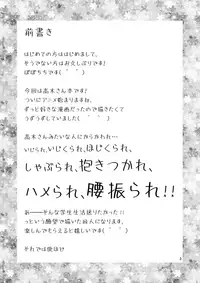 前書き
はじめての方ははじめまして、
そうでない方はお久しぶりです!
ぽぽちちです(　´　｀　)
今回は高木さん本です!
ついにアニメ始まりますね、
ずっと好きな漫画だったので描きたくて
うずうずしていました(　´　｀　)
高木さんみたいな人にからかわれ…
いじられ、いじくられ、ほじくられ、
しゃぶられ、抱きつかれ、
ハメられ、腰振られ!!
そんな学生生活送りたかった!!
という願望で描いた同人になります。
楽しんでもらえると嬉しいです(　´　｀　)
それでは後ほど